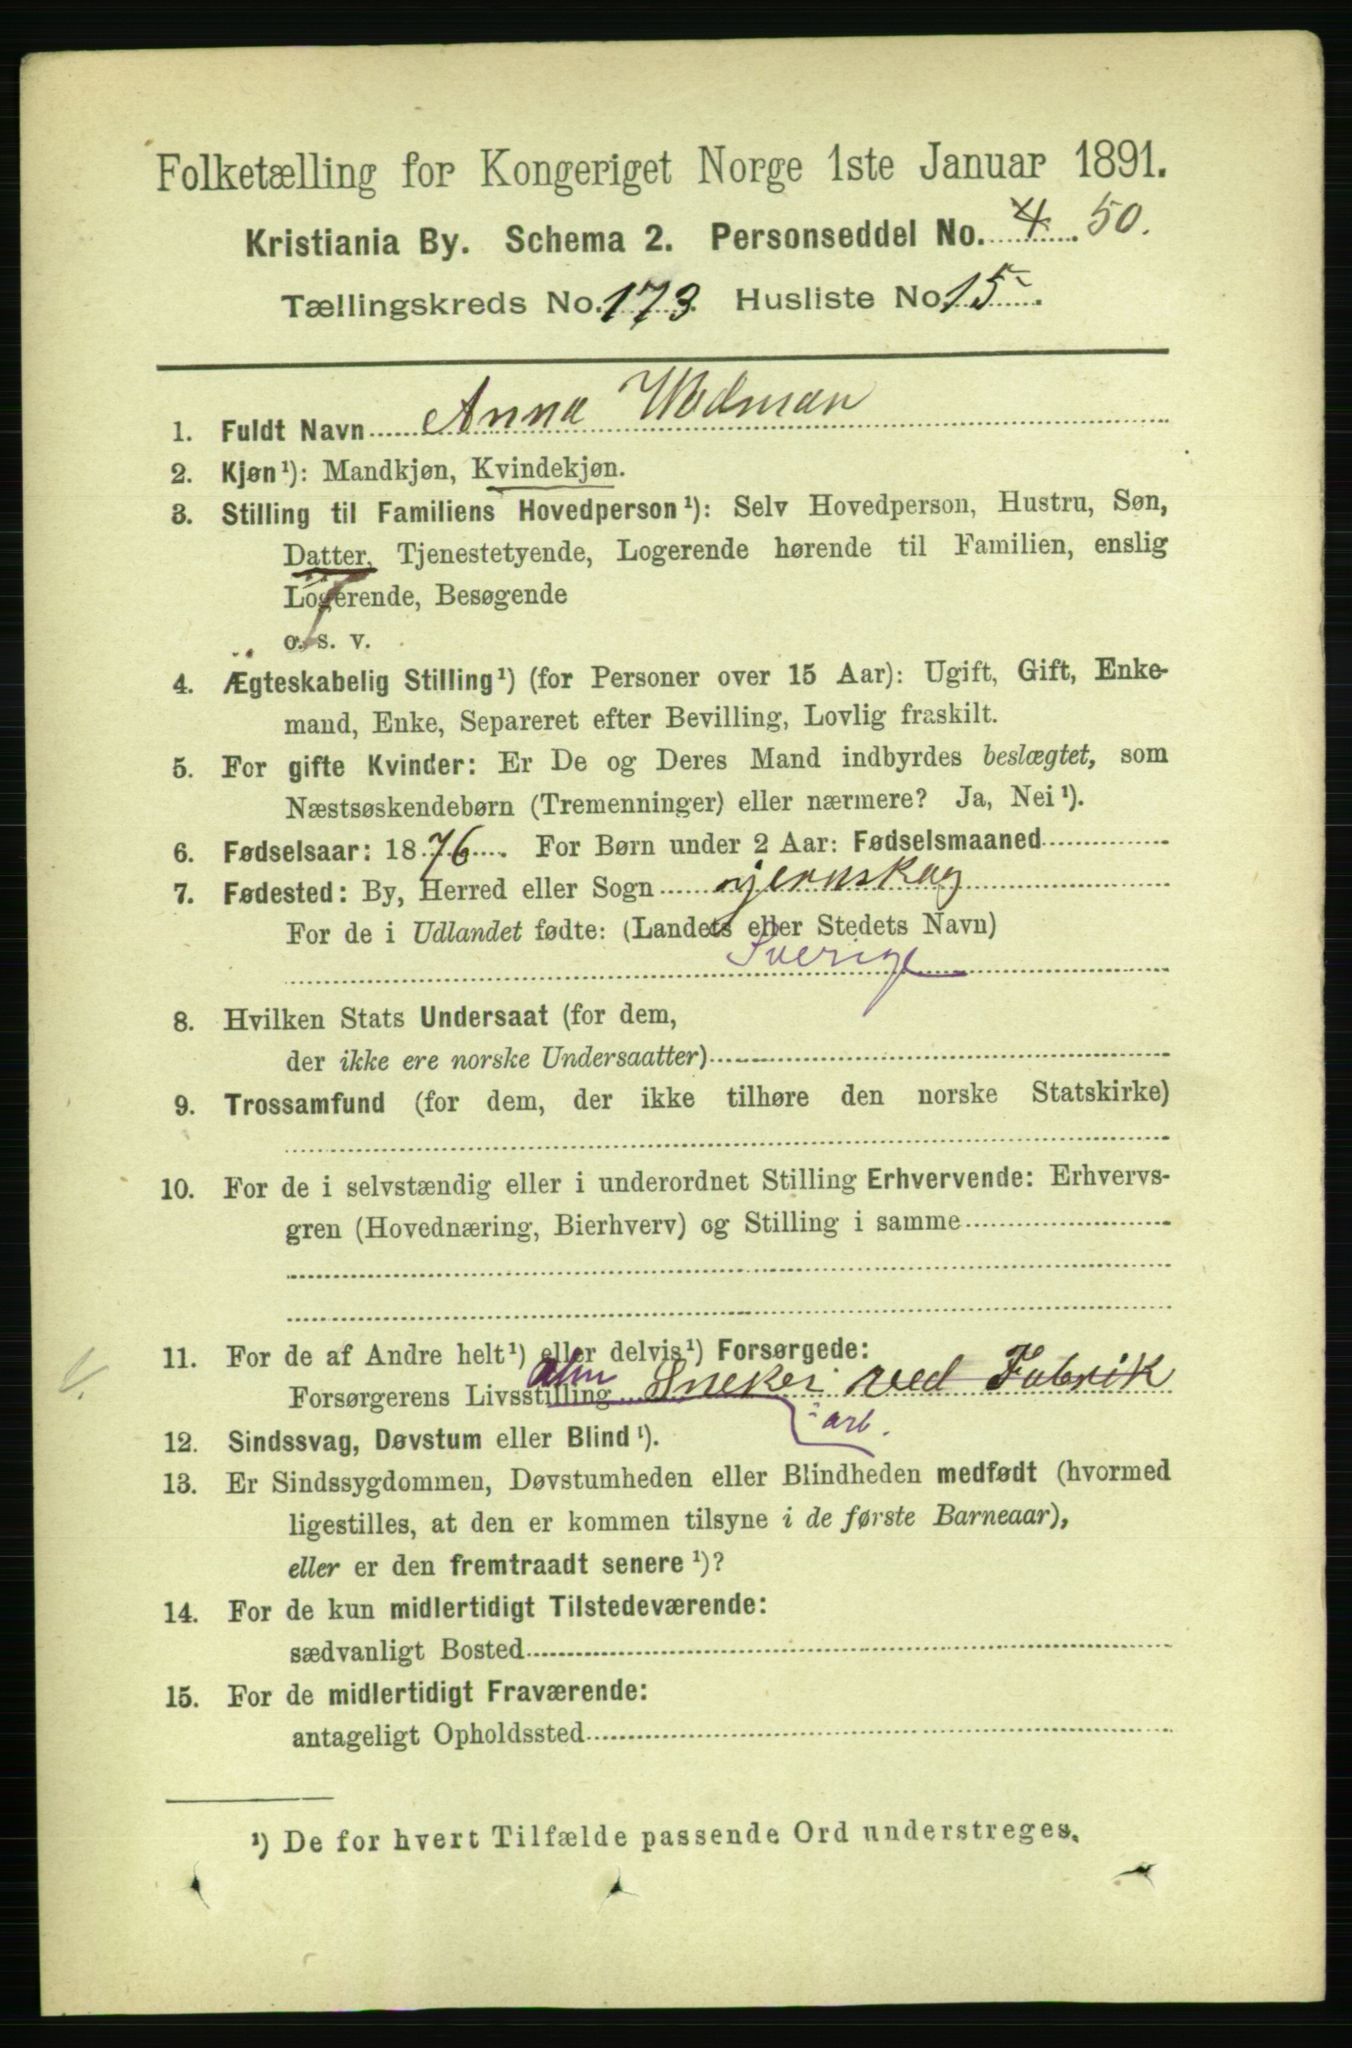 Folketælling for Kongeriget Norge 1ste Januar 1891.
Kristiania By. Schema 2. Personseddel No. 4. 50.
Tællingskreds No. 173. Husliste No 15.
1. Fuldt Navn Anna Wedman
2. Kjøn¹): Mandkjøn, Kvindekjøn.
3. Stilling til Familiens Hovedperson¹): Selv Hovedperson, Hustru, Søn,
Datter, Tjenestetyende, Logerende hørende til Familien, enslig
Logerende, Besøgende
o. s. v.
4. Ægteskabelig Stilling¹) (for Personer over 15 Aar): Ugift, Gift, Enke-
mand, Enke, Separeret efter Bevilling, Lovlig fraskilt.
5. For gifte Kvinder: Er De og Deres Mand indbyrdes beslægtet, som
Næstsøskendebørn (Tremenninger) eller nærmere? Ja, Nei¹).
6. Fødselsaar: 1876. For Børn under 2 Aar: Fødselsmaaned
7. Fødested: By, Herred eller Sogn gjernskog
For de i Udlandet fødte: (Landets eller Stedets Navn)
Sverige
8. Hvilken Stats Undersaat (for dem,
der ikke ere norske Undersaatter)
9. Trossamfund (for dem, der ikke tilhøre den norske Statskirke)
10. For de i selvstændig eller i underordnet Stilling Erhvervende: Erhvervs-
gren (Hovednæring, Bierhverv) og Stilling i samme
11. For de af Andre helt¹) eller delvis¹) Forsørgede:
Forsørgerens Livsstilling Alm Sneker ved Fabrik
arb.
12. Sindssvag, Døvstum eller Blind¹).
13. Er Sindssygdommen, Døvstumheden eller Blindheden medfødt (hvormed
ligestilles, at den er kommen tilsyne i de første Barneaar),
eller er den fremtraadt senere¹)?
14. For de kun midlertidigt Tilstedeværende:
sædvanligt Bosted
15. For de midlertidigt Fraværende:
antageligt Opholdssted
¹) De for hvert Tilfælde passende Ord understreges.